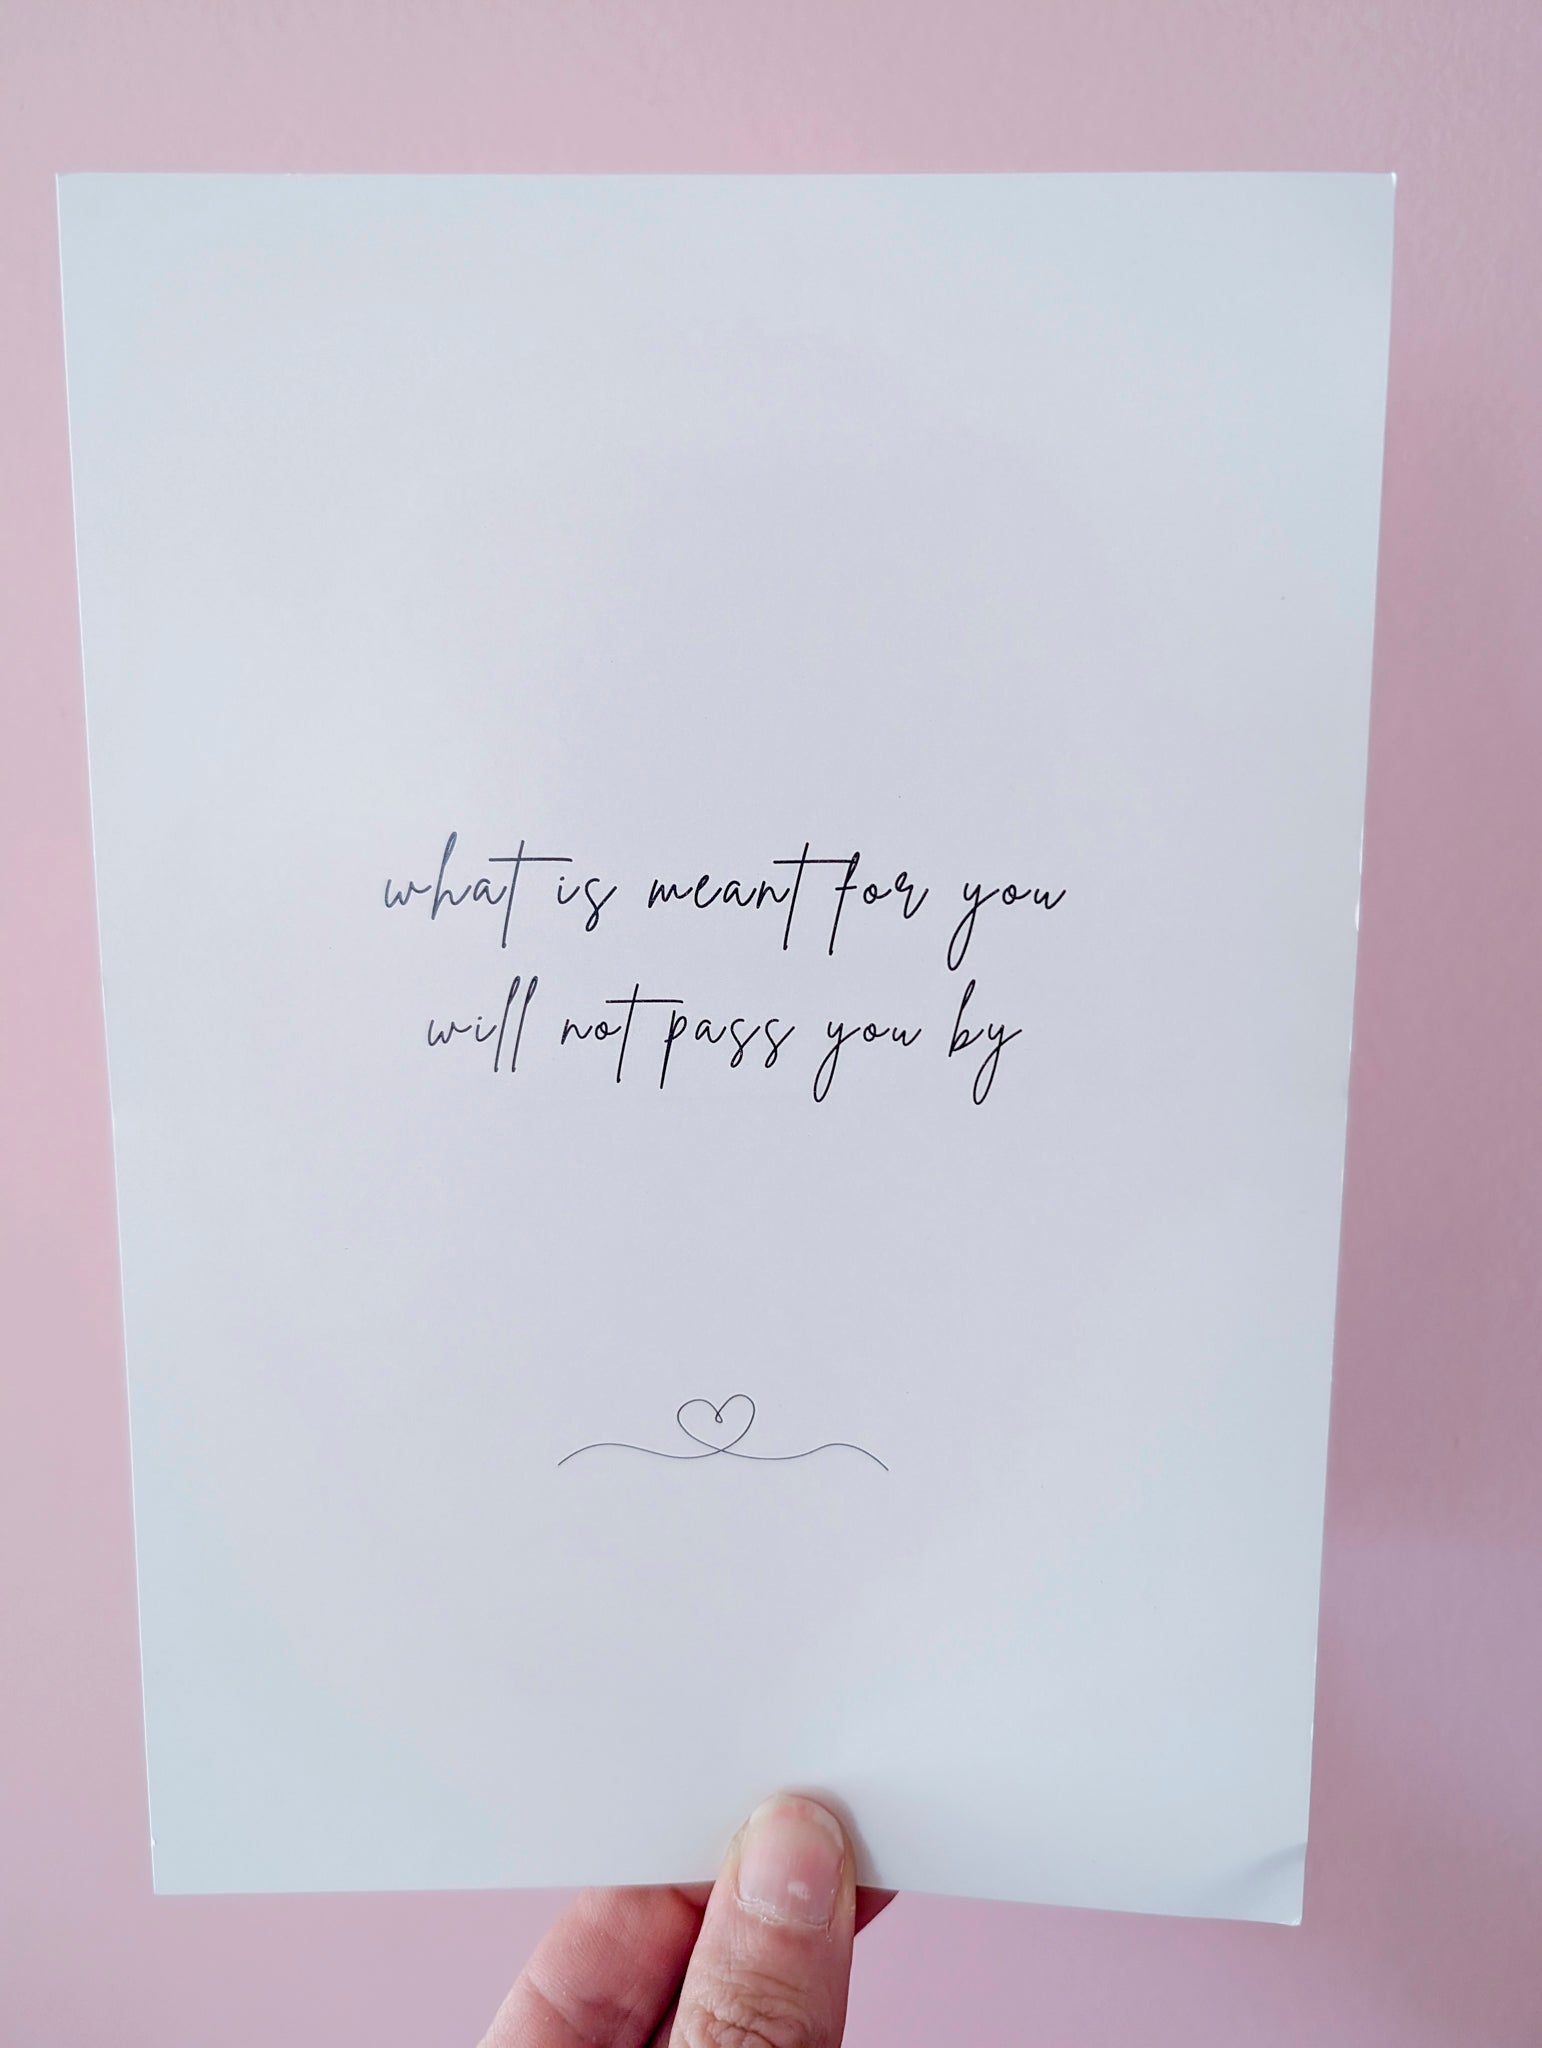 what is meant for you
will not pass you by